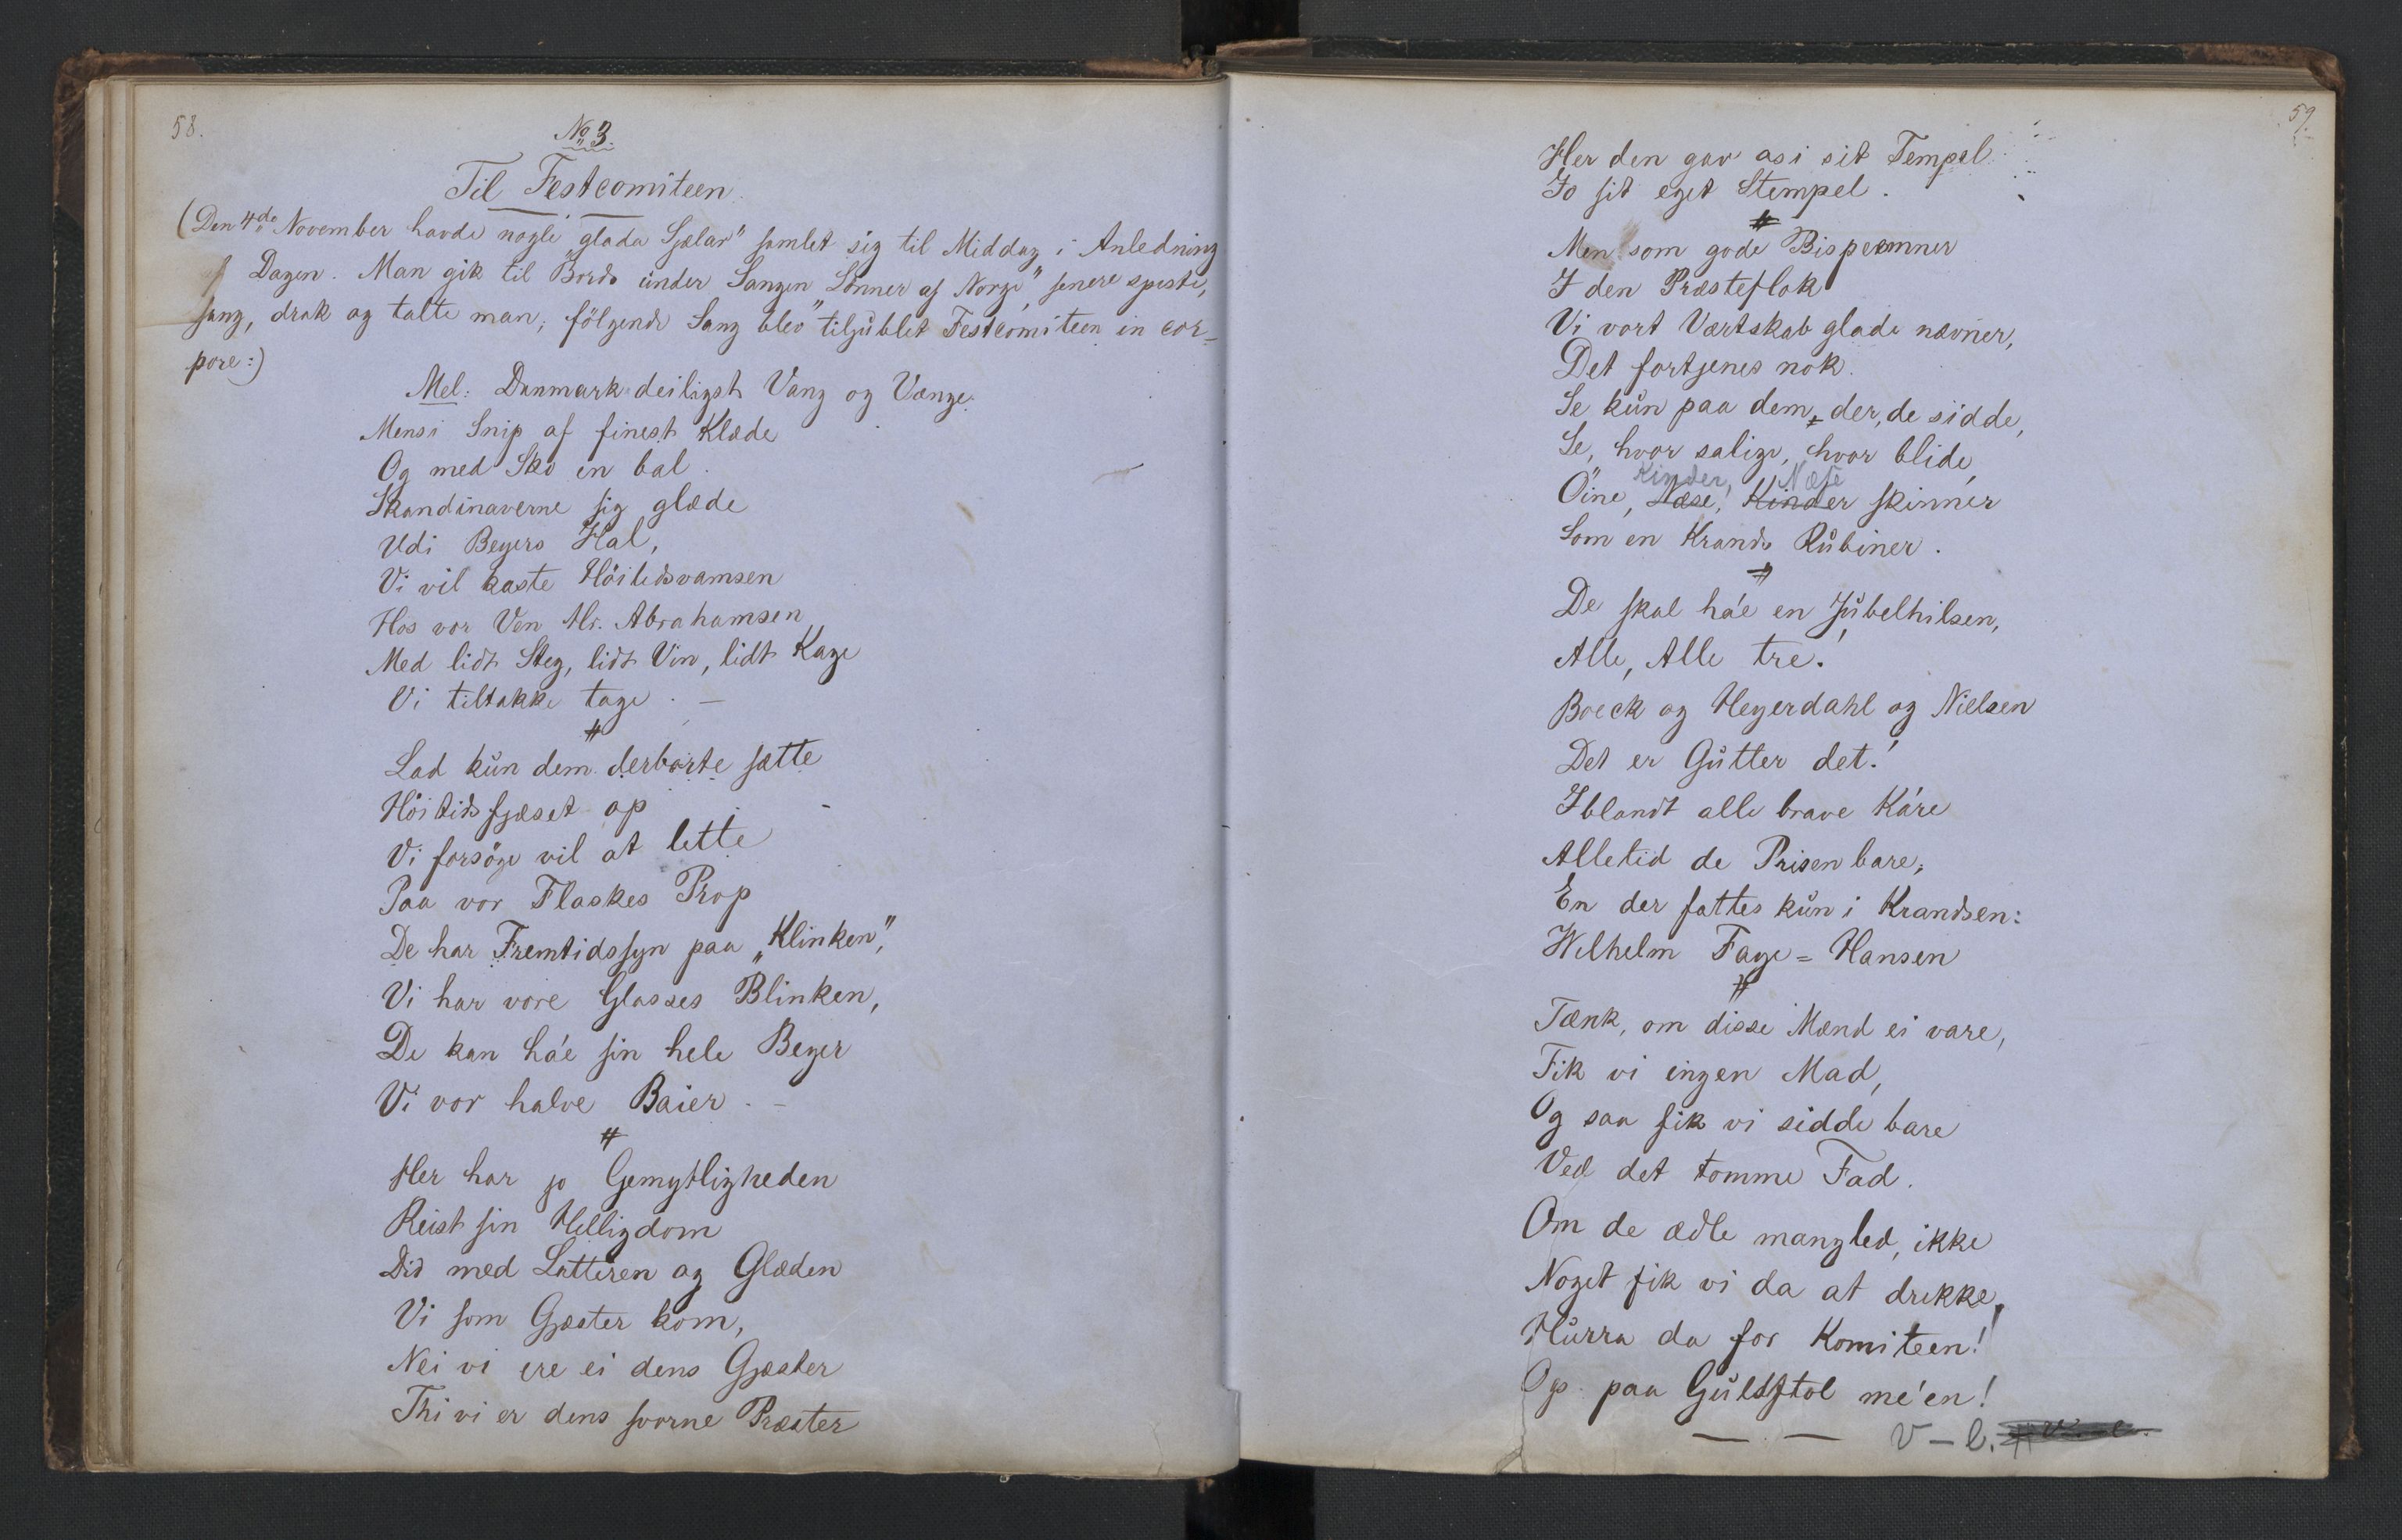 58.
No 3.
Til Festcomiteen.
(Den 4de November havde nogle "glada Sjælar" samlet sig til Middag i Anledning
af Dagen. Man gik til Bords under Sangen "Sönner af Norge", senere spiste,
sang, drak og talte man; fölgende Sang blev tiljublet Festcomiteen in cor-
pore:)
Mel: Danmark deiligst Vang og Vænge.
Mens i Snip af finest Klæde
Og med Sko en bal
Skandinaverne sig glæde
Udi Beyers Hal,
Vi vil kaste Höitidsvamsen
Hos vor Ven Hr. Abrahamsen
Med lidt Steg, lidt Vin, lidt Kage
Vi tiltakke tage. —
#
Lad kun dem derborte sætte
Höitidsfjæset op
Vi forsöge vil at lette
Paa vor Flaskes Prop
De har Fremtidssyn paa „Klinken",
Vi har vore Glasses Blinken,
De kan ha'e sin hele Beyer
Vi vor halve Baier. —
#
Her har jo Gemytligheden
Reist sin Helligdom
Did med Latteren og Glæden
Vi som Gjæster kom,
Nei vi ere ei dens Gjæster
Thi vi er dens svorne Præster
59.
Her den gav os i sit Tempel
Jo sit eget Stempel.
#
Men som gode Bispeemner
I den Præsteflok
Vi vort Værtskab glade nævner,
Det fortjenes nok.
Se kun paa dem, der, de sidde,
Se, hvor salige, hvor blide,
Kinder, Næse
Öine, Næse, Kinder skinner
Som en Krands Rubiner.
#
De skal ha'e en Jubelhilsen,
Alle, Alle tre!
Boeck og Heyerdahl og Nielsen
Det er Gutter det!
Iblandt alle brave Kåre
Alletid de Prisen bare,
En der fattes kun i Krandsen:
Wilhelm Faye-Hansen
#
Tænk, om disse Mænd ei vare,
Fik vi ingen Mad,
Og saa fik vi sidde bare
Ved det tomme Fad.
Om de ædle mangled, ikke
Noget fik vi da at drikke,
Hurra da for Komiteen!
Op paa Guldstol me'en!
V-l.